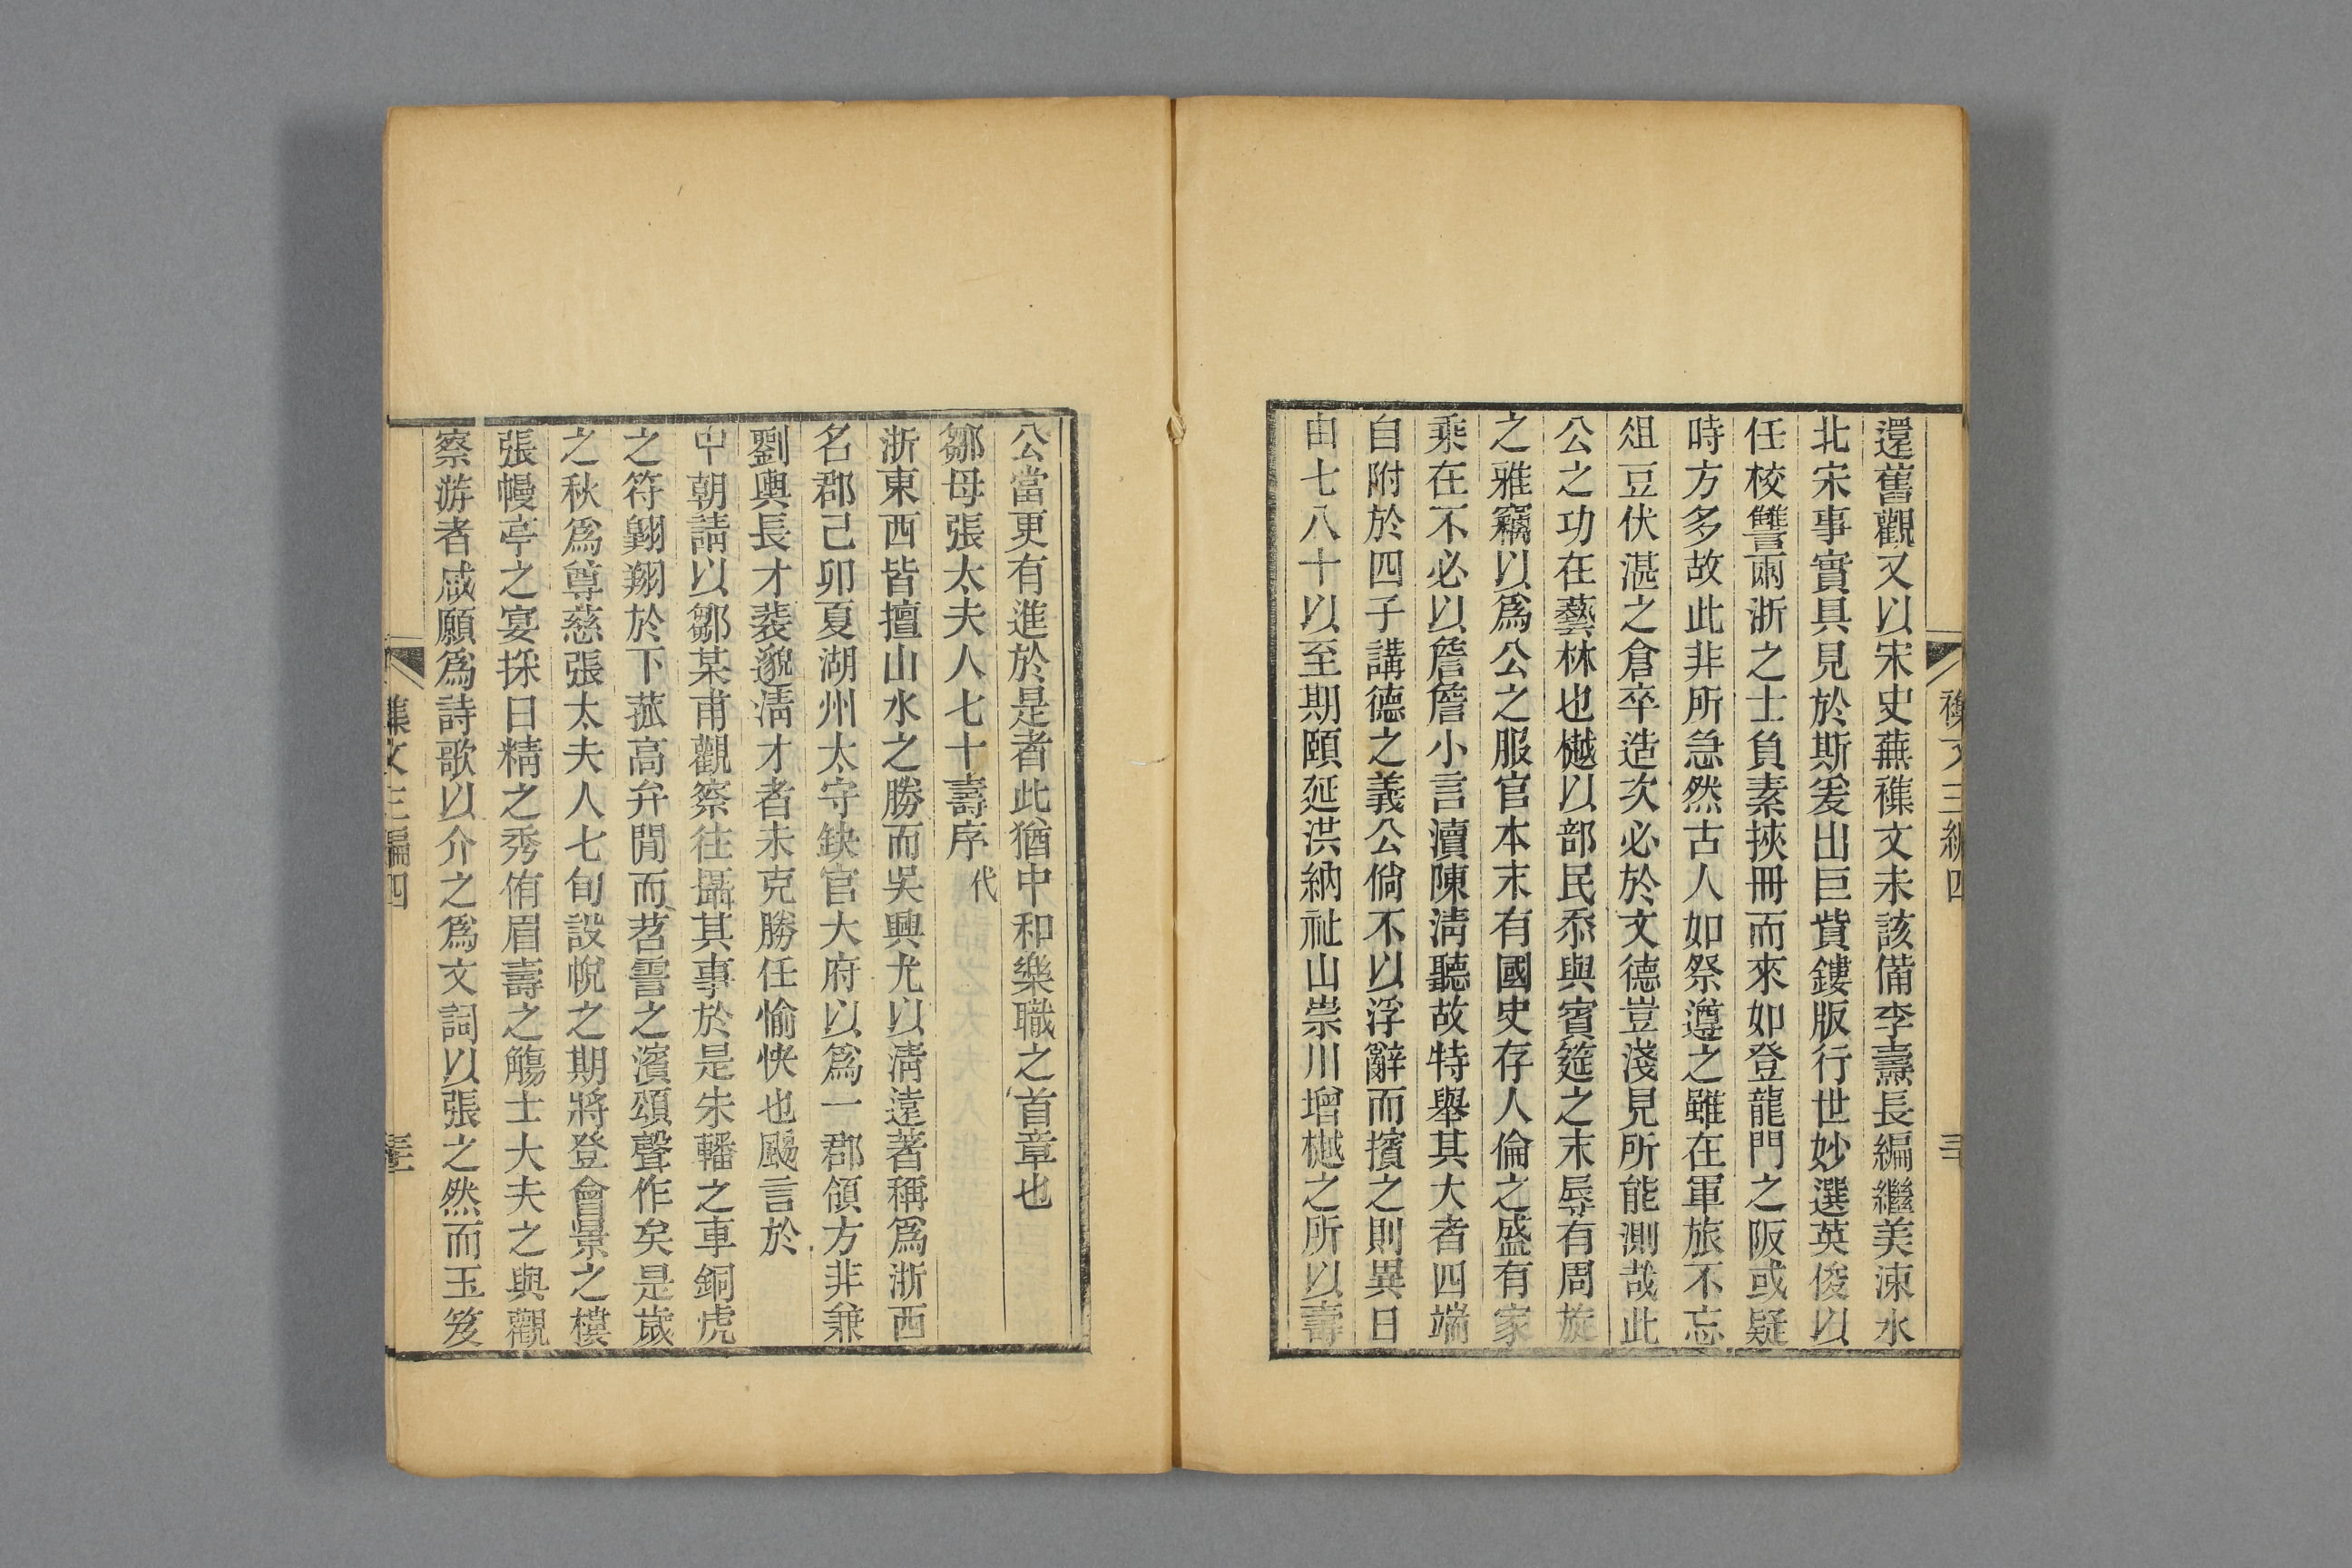 還舊觀又以宋史蕪襍文未該備李燾長編繼美涑水
北宋事實具見於斯爰出巨貲鏤版行世妙選英俊以
任校讐兩浙之士負素挾冊而來如登龍門之阪或疑
時方多故此非所急然古人如祭遵之雖在軍旅不忘
俎豆伏湛之倉卒造次必於文德豈淺見所能測哉此
公之功在藝林也樾以部民忝與賓筵之末辱有周旋
之雅竊以爲公之服官本末有國史存人倫之盛有家
乘在不必以詹詹小言瀆陳淸聽故特舉其大者四端
自附於四子講德之義公倘不以浮辭而擯之則異日
由七八十以至期頤延洪納祉山崇川增樾之所以壽
公當更有進於是者此猶中和樂職之首章也
鄒母張太夫人七十壽序 代
浙東西皆擅山水之勝而吳興尤以淸遠著稱爲浙西
名郡己卯夏湖州太守缺官大府以爲一郡領方非兼
劉輿長才裴邈淸才者未克勝任愉快也颺言於
中朝請以鄒某甫觀察往攝其事於是朱轓之車銅虎
之符翺翔於下菰高弁閒而苕霅之濱頌聲作矣是歲
之秋爲尊慈張太夫人七旬設帨之期將登會景之樓
張幔亭之宴採日精之秀侑眉壽之觴士大夫之與觀
察游者咸願爲詩歌以介之爲文詞以張之然而玉笈
襍文三編四